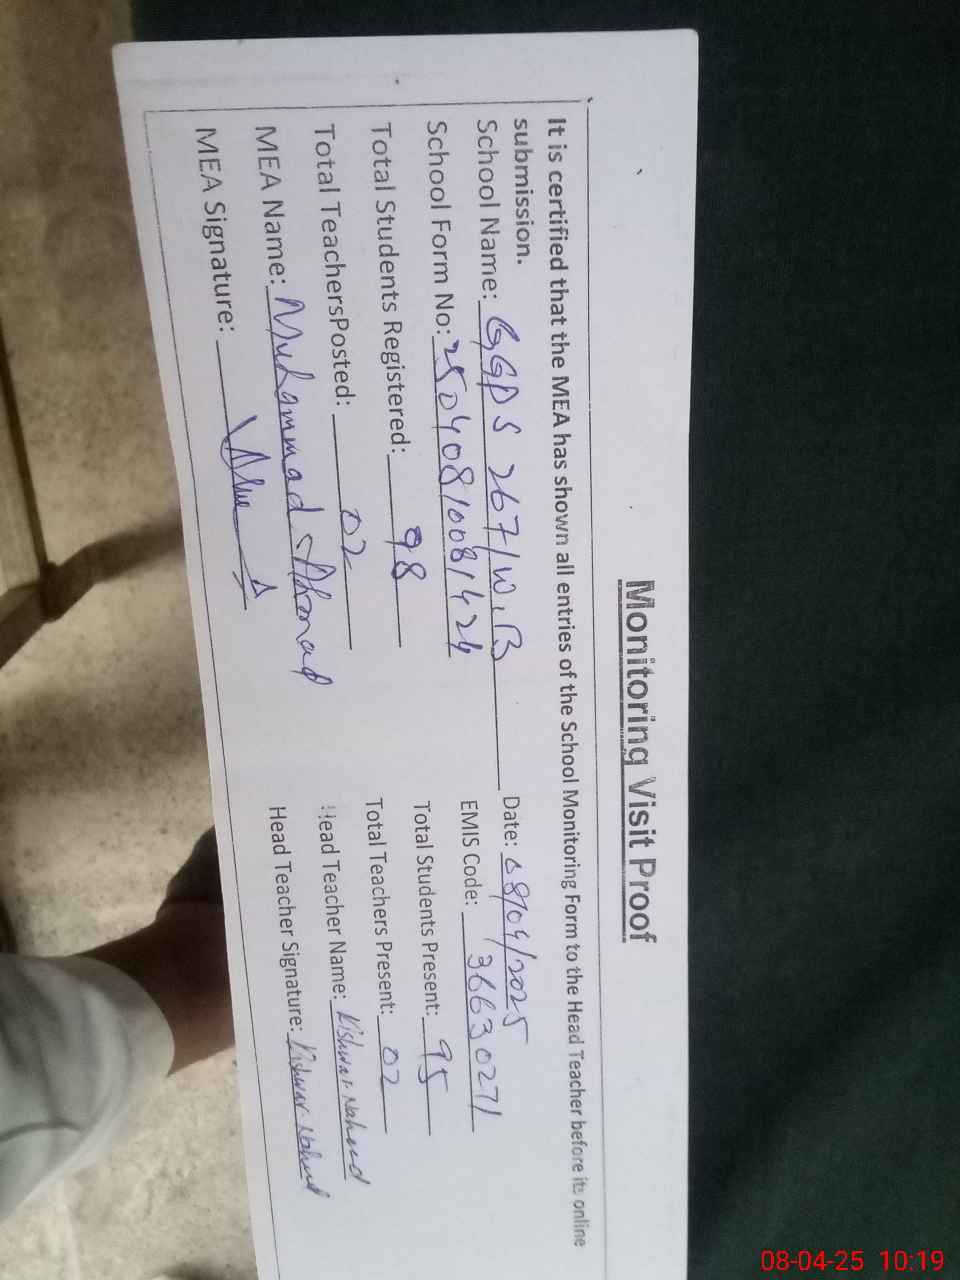 Monitoring Visit Proof
It is certified that the MEA has shown all entries of the School Monitoring Form to the Head Teacher before its online
submission.
School Name: GGPS 267/W.B Date: 08/04/2025
School Form No: 250408/008/424 EMIS Code: 36630271
Total Students Registered: 98 Total Students Present: 95
Total TeachersPosted: 02 Total Teachers Present: 02
MEA Name: Muhammad Ahmad Head Teacher Name: Kishwar Naheed
MEA Signature: Head Teacher Signature: Kishwar Naheed
08-04-25 10:19